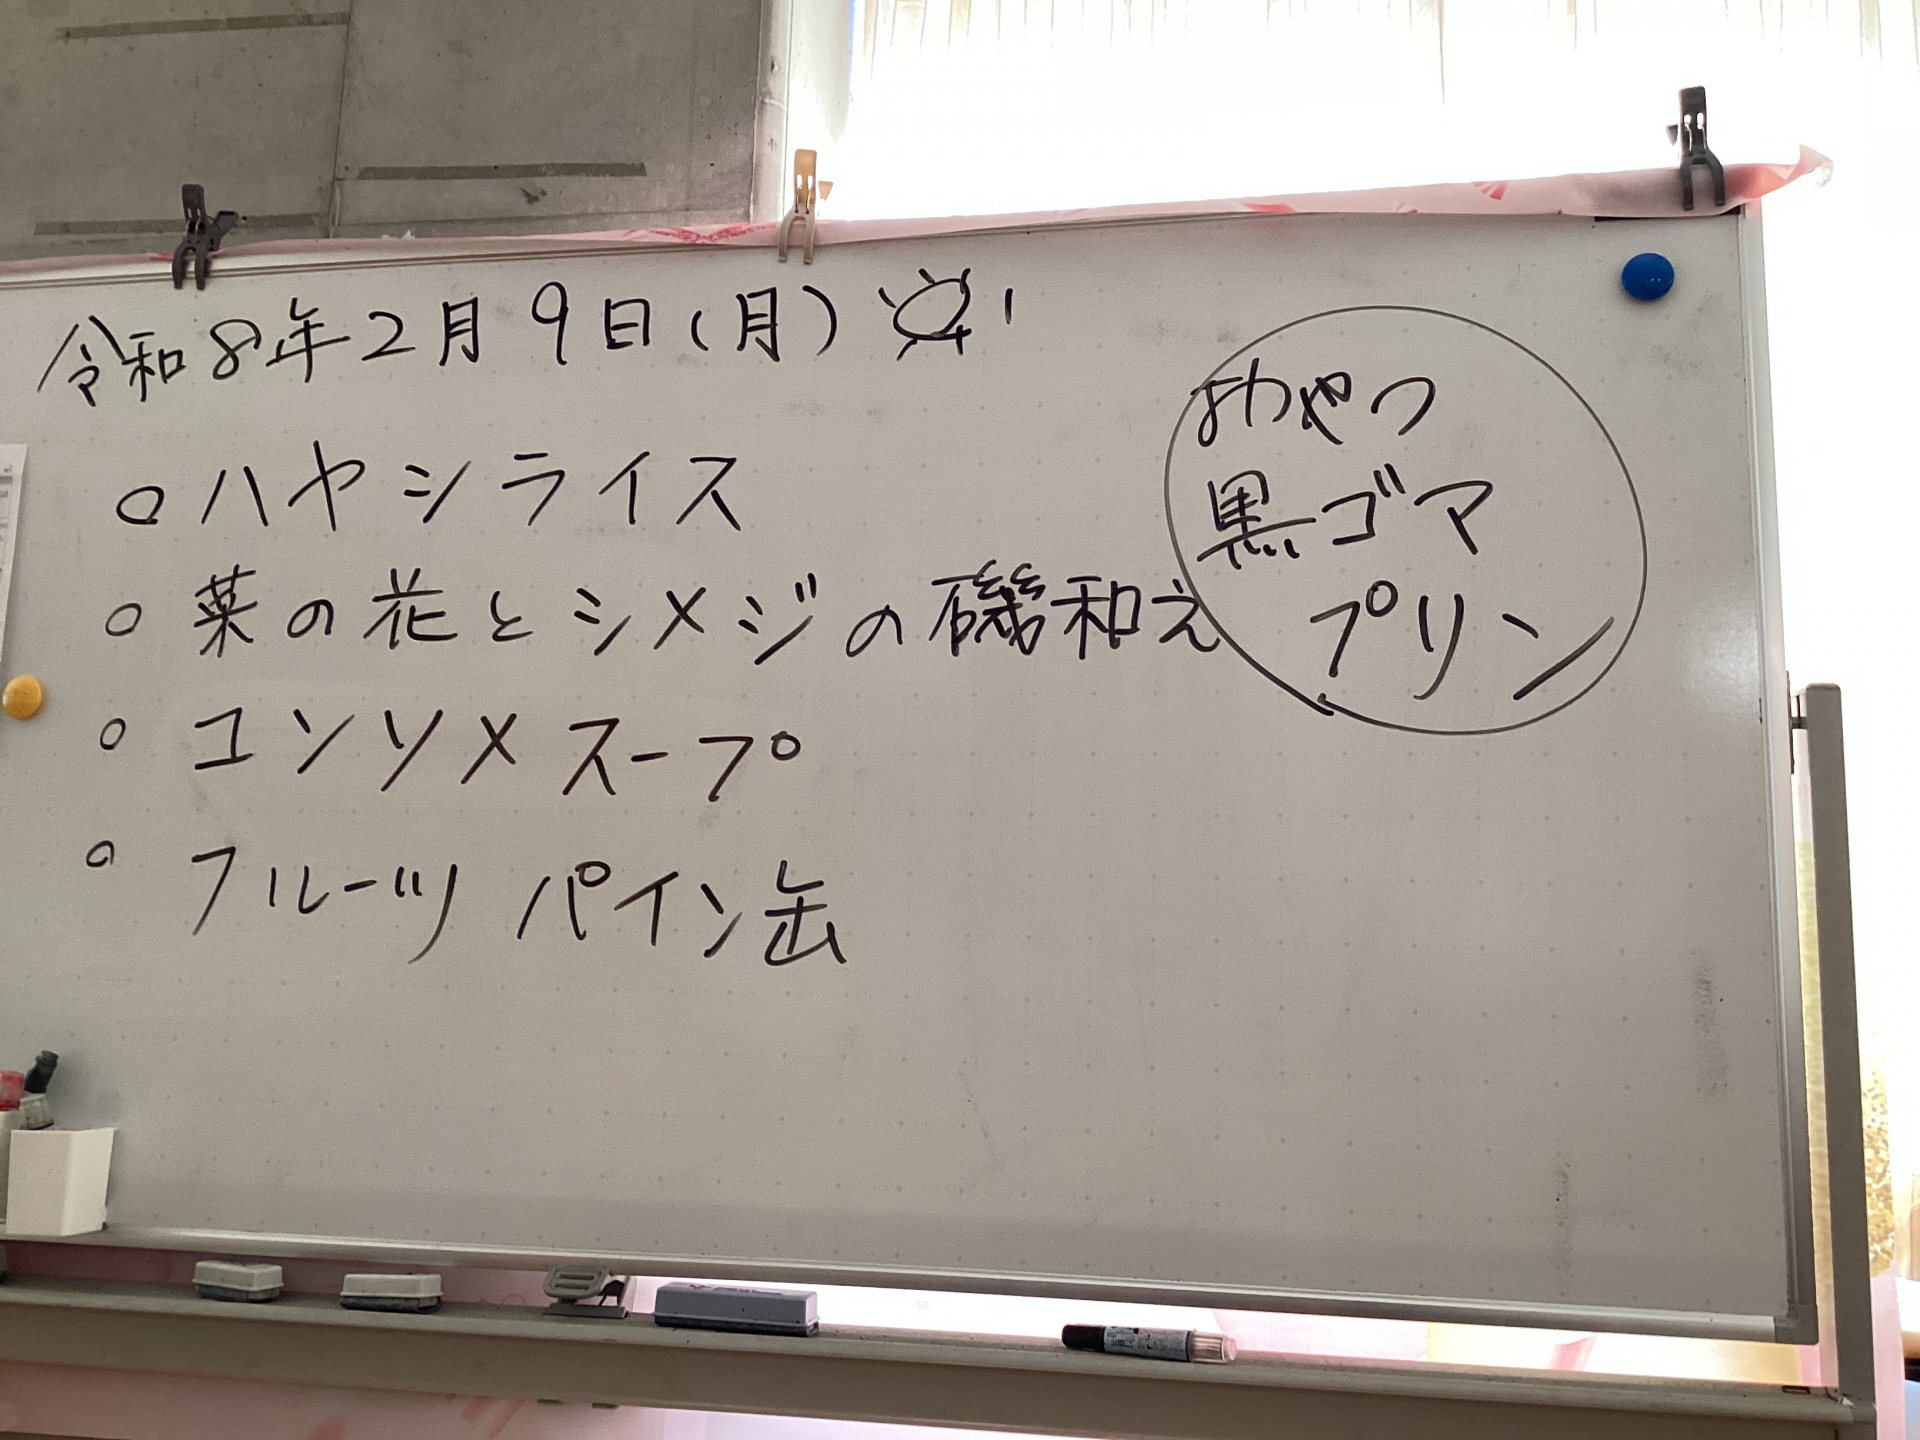 令和8年2月9日(月)
○ハヤシライス
○菜の花とシメジの磯和え
○コンソメスープ
○フルーツ パイン缶
おやつ
黒ゴマ
プリン